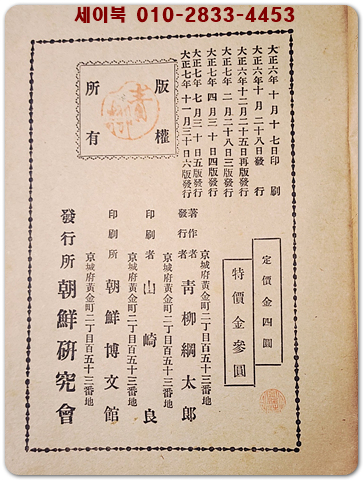 세이북 010-2833-4453
大正六年十月十七日印刷
大正六年十月二十八日發行
大正六年十二月二十五日再版發行
大正七年二月二十八日三版發行
大正七年四月三十日四版發行
大正七年七月三十日五版發行
大正七年十一月三十日六版發行
版權
所有
定價金四圓
特價金參圓
京城府黃金町二丁目百五十三番地
著作者
發行者
靑柳綱太郎
京城府黃金町二丁目百五十三番地
印刷者 山崎良
京城府黃金町二丁目百五十三番地
印刷所 朝鮮博文館
京城府黃金町二丁目百五十三番地
發行所 朝鮮硏究會